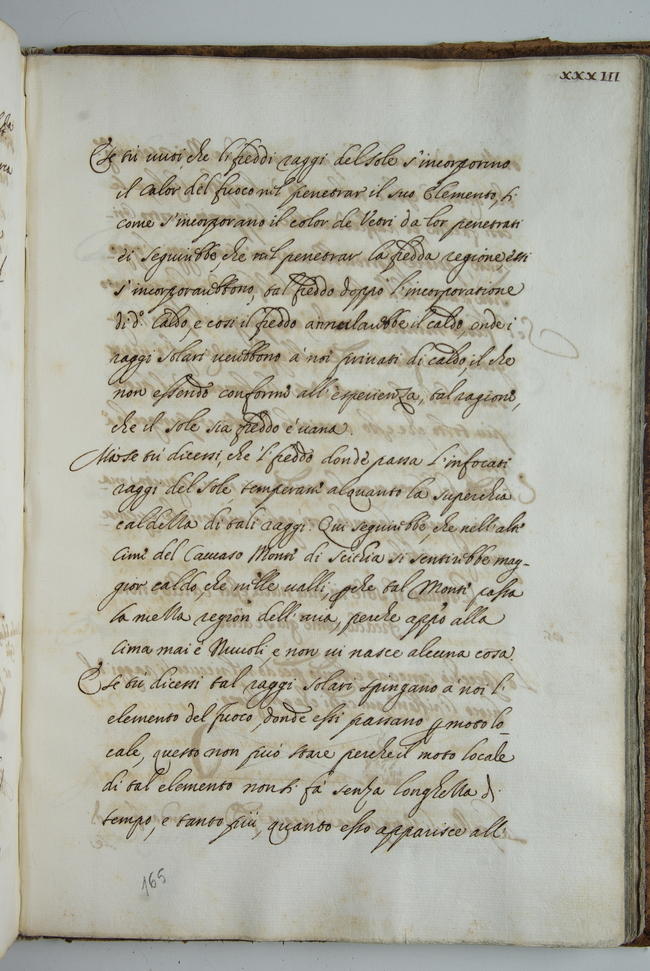 XXXIII
E se tu vuoi che li freddi raggi del sole s'incorporino
il calor del fuoco nel penetrar il suo Elemento, si
come s'incorporano il color de Vetri da lor penetrati
ei seguirebbe, che nel penetrar la fredda regione, essi
s'incorporarebbono, tal freddo doppo l'incorporatione
di d.º Caldo, e così il freddo annullarebbe il caldo, onde i
raggi solari verebbono à noi privati di caldo, il che
non essendo conforme all'esperienza, tal ragione,
che il sole sia freddo è vana.
Ma se tu dicessi, che 'l freddo dond'è passa l'infocati
raggi del sole temperare alquanto la superchia
caldezza di tali raggi. Qui seguirebbe, che nell'alte
cime del Caucaso Monte di Scithia si sentirebbe mag-
gior caldo, che nelle valli, perche tal Monte passa
la mezza region dell'aria, perche appo alla
cima mai è Nuvoli e non vi nasce alcuna cosa.
E se tu dicessi tal raggi solari spingano à noi l'
elemento del fuoco, donde essi passano p moto lo-
cale, questo non può stare perche il moto locale
di tal elemento non si fà senza longhezza di
tempo, e tanto più, quanto esso apparisce all'
165